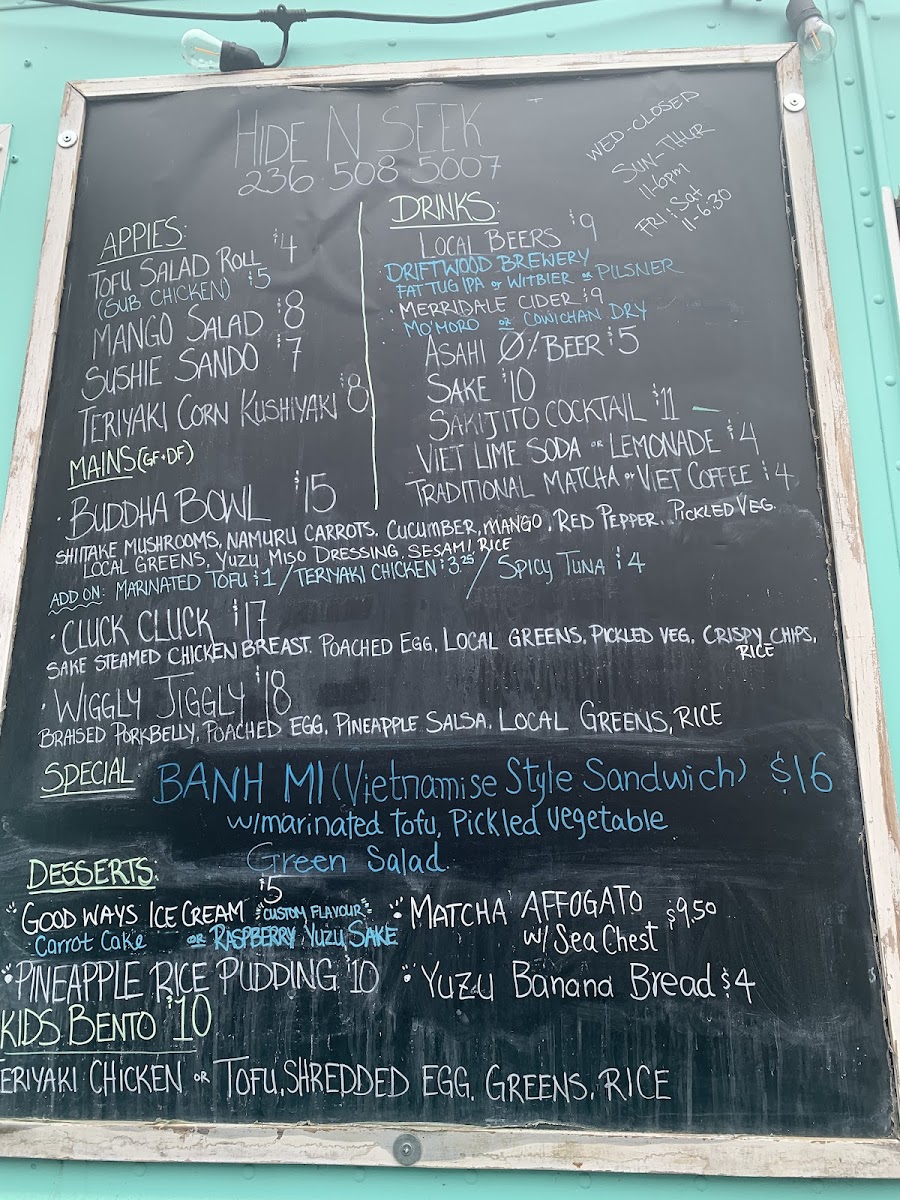 HIDE N SEEK
236 508 5007
WED-CLOSED
SUN-THUR
11-6pm
FRI: Sat
11-6:30
APPIES:
TOFU SALAD ROLL $4
(SUB CHICKEN) $5
MANGO SALAD $8
SUSHIE SANDO $7
TERIYAKI CORN KUSHIYAKI $8
DRINKS:
LOCAL BEERS $9
DRIFTWOOD BREWERY
FAT TUG IPA or WITBIER or PILSNER
MERRIDALE CIDER $9
MO'MORO or COWICHAN DRY
ASAHI 0% BEER $5
SAKE $10
SAKIJITO COCKTAIL $11
VIET LIME SODA or LEMONADE $4
TRADITIONAL MATCHA or VIET COFFEE $4
MAINS (GF+DF)
BUDDHA BOWL $15
SHIITAKE MUSHROOMS, NAMURU CARROTS. CUCUMBER, MANGO, RED PEPPER. PICKLED VEG.
LOCAL GREENS, YUZU MISO DRESSING, SESAMI, RICE
ADD ON: MARINATED TOFU $1 / TERIYAKI CHICKEN $3.25 / SPICY TUNA $4
CLUCK CLUCK $17
SAKE STEAMED CHICKEN BREAST. POACHED EGG, LOCAL GREENS, PICKLED VEG, CRISPY CHIPS,
RICE
WIGGLY JIGGLY $18
BRAISED PORKBELLY, POACHED EGG, PINEAPPLE SALSA, LOCAL GREENS, RICE
SPECIAL: BANH MI (Vietnamise Style Sandwich) $16
w/marinated Tofu, Pickled vegetable
Green Salad
DESSERTS:
GOOD WAYS ICE CREAM $5 "CUSTOM FLAVOUR"
Carrot Cake or RASPBERRY YUZU SAKE
MATCHA AFFOGATO $9.50
w/ Sea Chest
PINEAPPLE RICE PUDDING $10
YUZU Banana Bread $4
KIDS BENTO $10
TERIYAKI CHICKEN OR TOFU, SHREDDED EGG, GREENS, RICE